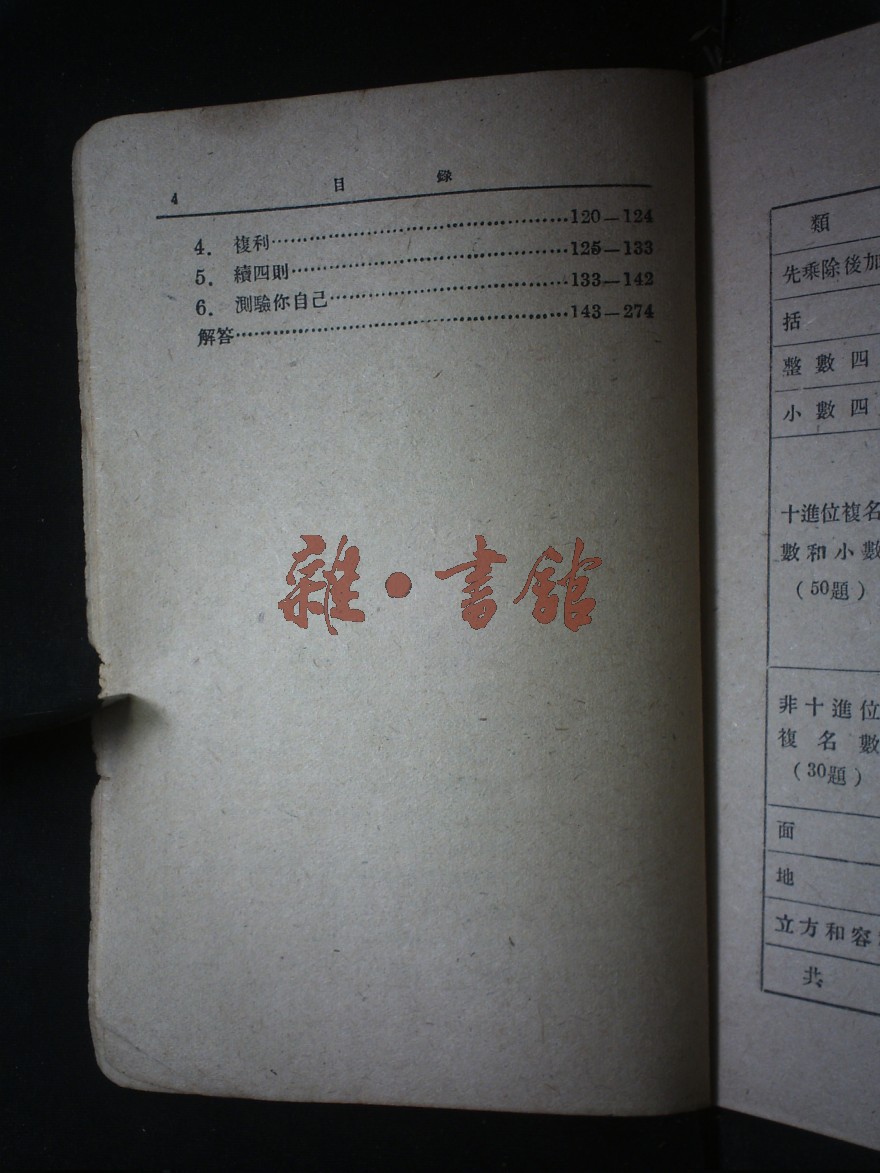 4 目錄
4. 複利……120—124
5. 續四則……125—133
6. 測驗你自己……133—142
解答……143—274
雜·書館
類
先乘除後加
括
整數四
小數四
十進位複名
數和小數
(50題)
非十進位
複名數
(30題)
面
地
立方和容
共